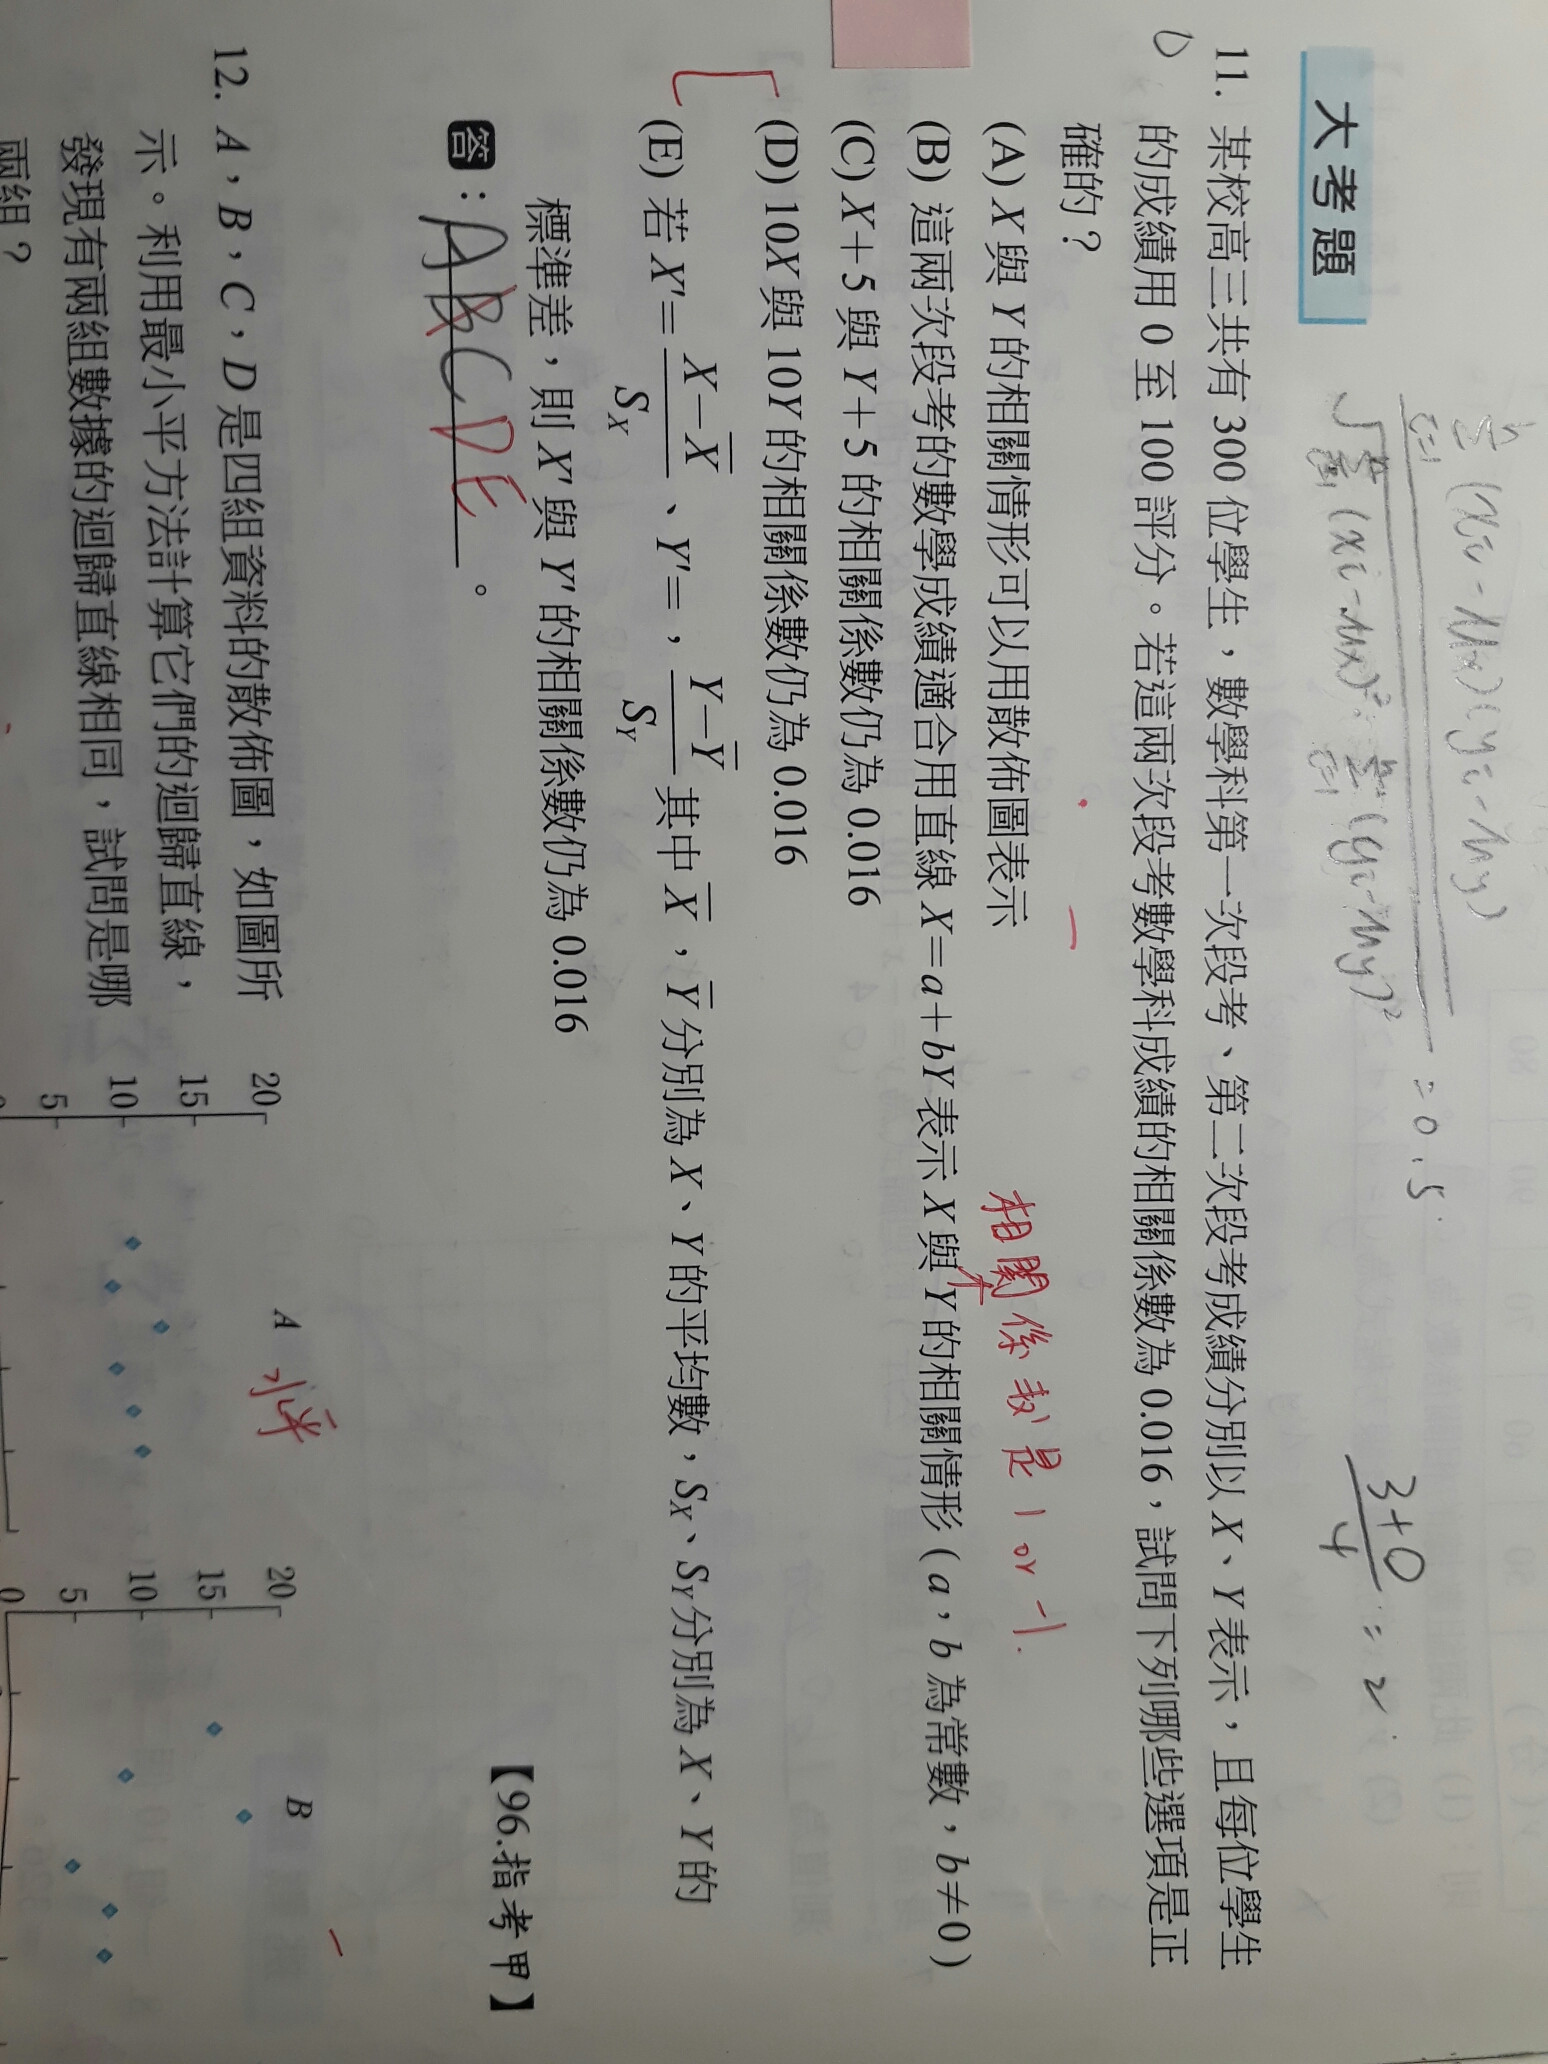 大考題
n
Σ (xi - μx)(yi - μy)
i=1
= 0.5
√ Σ (xi - μx)² · Σ (yi - μy)²
i=1
i=1
3+0
4
= 2
11. 某校高三共有 300 位學生，數學科第一次段考、第二次段考成績分別以 X、Y 表示，且每位學生
的成績用 0 至 100 評分。若這兩次段考數學科成績的相關係數為 0.016，試問下列哪些選項是正
確的？
(A) X 與 Y 的相關情形可以用散佈圖表示
相關係數是 1 or -1.
(B) 這兩次段考的數學成績適合用直線 X=a+bY 表示 X 與 Y 的相關情形 (a，b 為常數，b≠0)
(C) X+5 與 Y+5 的相關係數仍為 0.016
(D) 10X 與 10Y 的相關係數仍為 0.016
(E) 若 X'= (X−X̄)/S_X 、Y'=，(Y−Ȳ)/S_Y 其中 X̄，Ȳ 分別為 X、Y 的平均數，S_X、S_Y 分別為 X、Y 的
標準差，則 X' 與 Y' 的相關係數仍為 0.016
答：ABCDE。
【96.指考甲】
12. A，B，C，D 是四組資料的散佈圖，如圖所
示。利用最小平方法計算它們的迴歸直線，
發現有兩組數據的迴歸直線相同，試問是哪
兩組？
A
水平
20
15
10
5
0
B
20
15
10
5
0